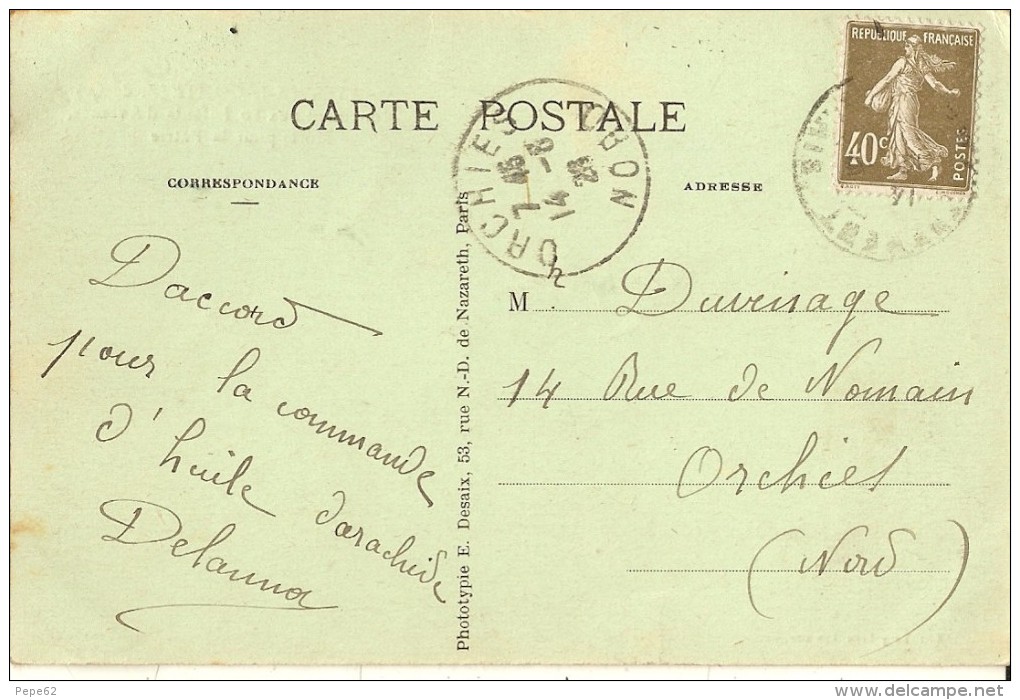 CARTE POSTALE
CORRESPONDANCE
ADRESSE
REPUBLIQUE FRANÇAISE
40c
POSTES
ORCHIES
NORD
7 45
14 - 8
32
Daccord
pour la commande
d'huile darachide
Delannoy
Phototypie E. Desaix, 53, rue N.-D. de Nazareth, Paris
M. Duvinage
14 Rue de Nomain
Orchies
(Nord)
Pepe62
www.delcampe.net